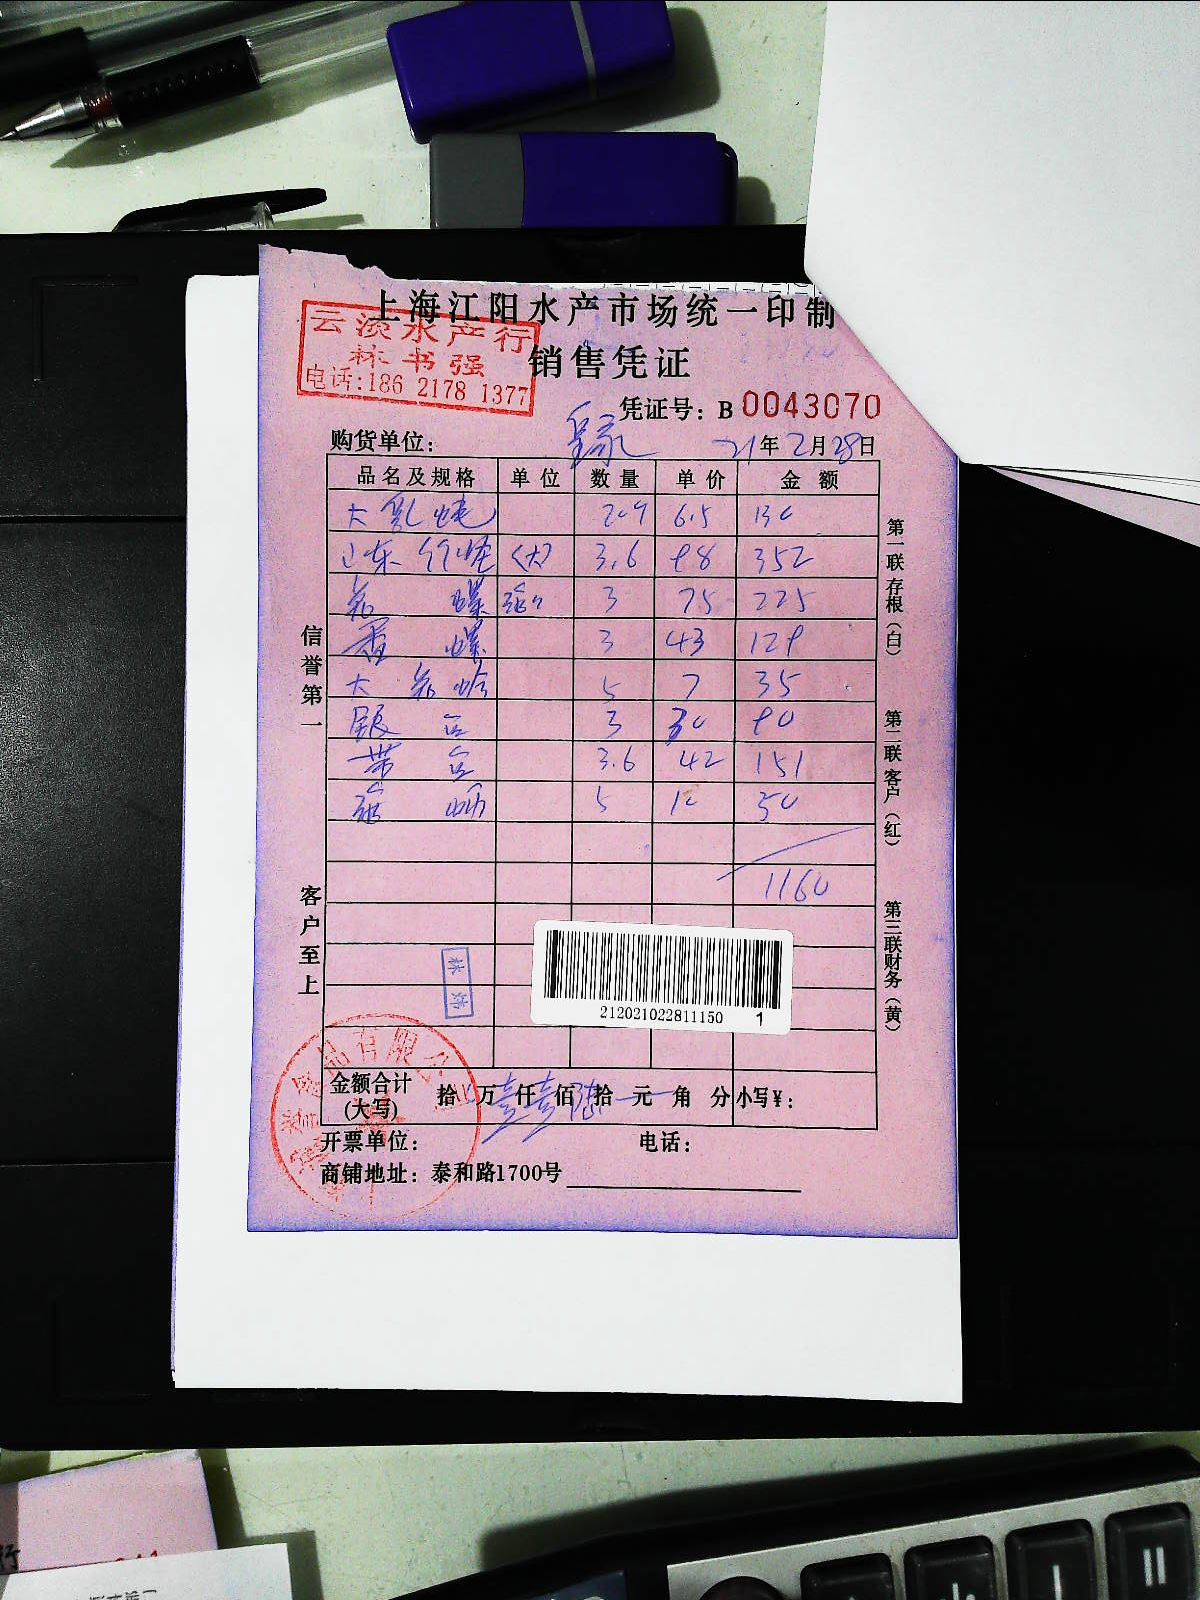 上海江阳水产市场统一印制
云淡水产行
林书强
电话:186 2178 1377
销售凭证
凭证号: B 0043070
购货单位: 皇家 21年2月28日
品名及规格 单位 数量 单价 金额
大乳 6.5 130
山东 (大) 3.6 98 352
花螺 3 75 225
香螺 3 43 129
大花蛤 5 7 35
银 3 30 90
带 3.6 42 151
5 10 50
1160
212021022811150 1
金额合计(大写) 拾 万壹仟壹佰陆拾 元 角 分 小写¥:
开票单位: 电话:
商铺地址: 泰和路1700号
信誉第一
客户至上
第一联存根(白)
第二联客户(红)
第三联财务(黄)
品有限公